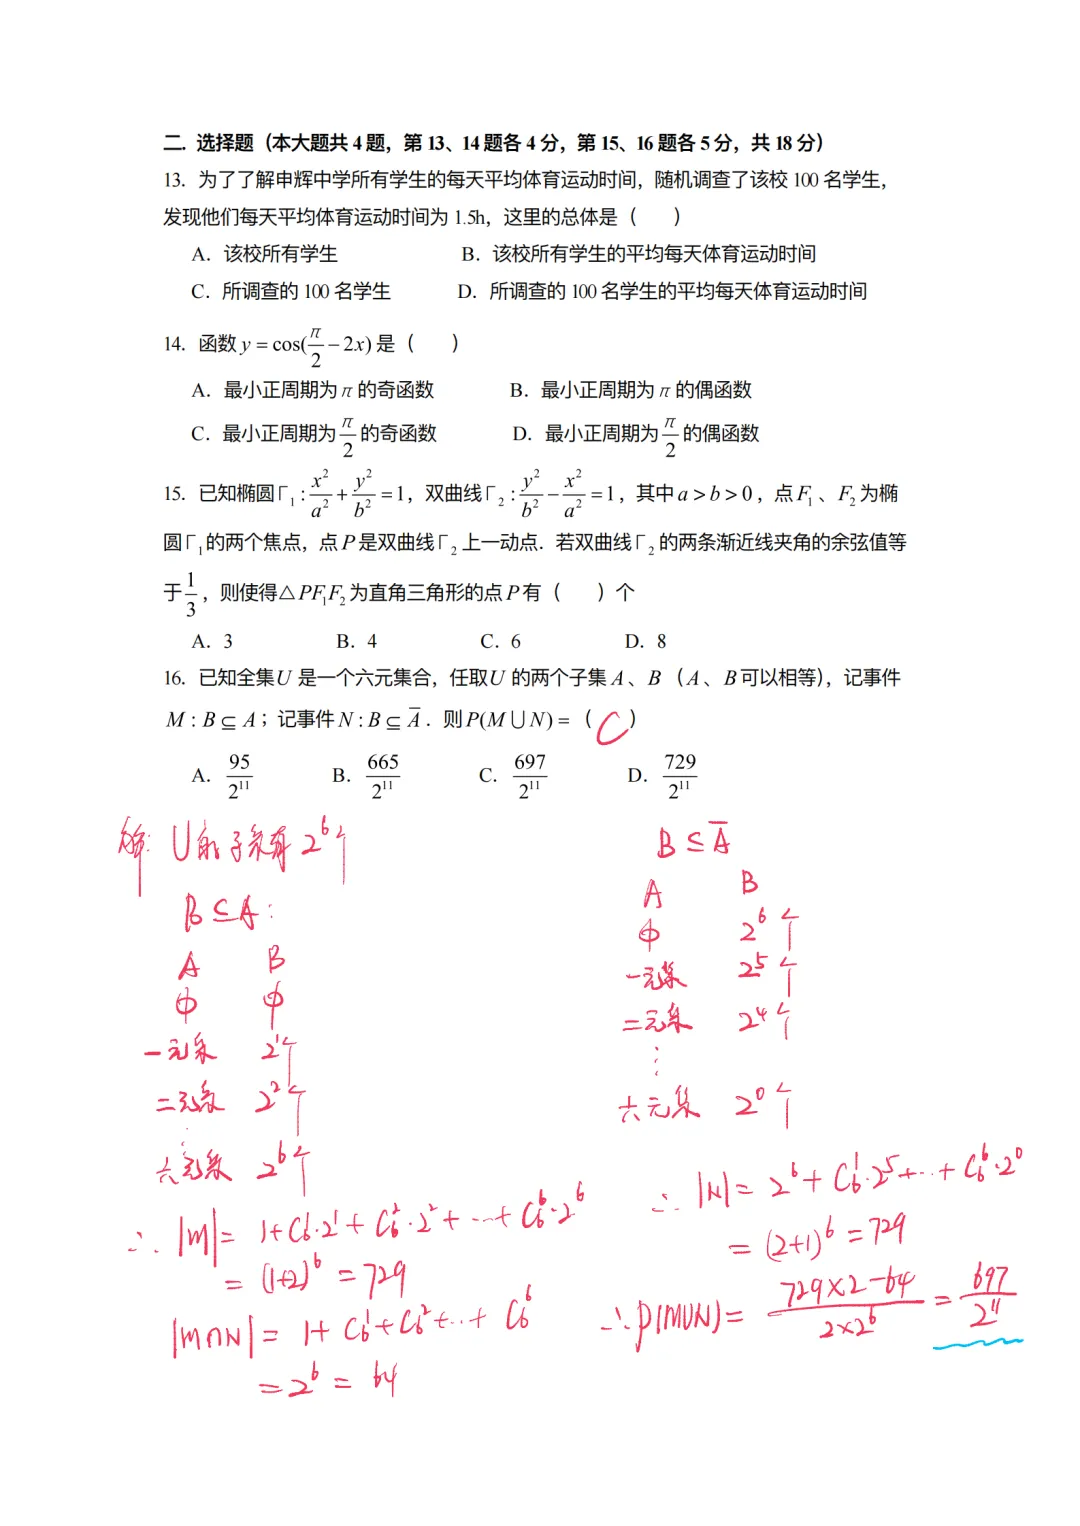 二. 选择题（本大题共 4 题，第 13、14 题各 4 分，第 15、16 题各 5 分，共 18 分）
13. 为了了解申辉中学所有学生的每天平均体育运动时间，随机调查了该校 100 名学生，
发现他们每天平均体育运动时间为 1.5h，这里的总体是（　　）
A. 该校所有学生　　B. 该校所有学生的平均每天体育运动时间
C. 所调查的 100 名学生　　D. 所调查的 100 名学生的平均每天体育运动时间
14. 函数 y = cos(π/2 − 2x) 是（　　）
A. 最小正周期为 π 的奇函数　　B. 最小正周期为 π 的偶函数
C. 最小正周期为 π/2 的奇函数　　D. 最小正周期为 π/2 的偶函数
15. 已知椭圆 Γ₁ : x²/a² + y²/b² = 1，双曲线 Γ₂ : y²/b² − x²/a² = 1，其中 a > b > 0，点 F₁、F₂ 为椭
圆 Γ₁ 的两个焦点，点 P 是双曲线 Γ₂ 上一动点．若双曲线 Γ₂ 的两条渐近线夹角的余弦值等
于 1/3，则使得△PF₁F₂ 为直角三角形的点 P 有（　　）个
A. 3　　B. 4　　C. 6　　D. 8
16. 已知全集 U 是一个六元集合，任取 U 的两个子集 A、B（A、B 可以相等），记事件
M : B ⊆ A；记事件 N : B ⊆ A̅．则 P(M ∪ N) =（ C ）
A. 95/2¹¹　　B. 665/2¹¹　　C. 697/2¹¹　　D. 729/2¹¹
解: U的子集有 2⁶个
B ⊆ A :
A　B
ф　ф
一元集　2¹个
二元集　2²个
⋮
六元集　2⁶个
∴ |M| = 1+C₆¹·2¹+C₆²·2²+…+C₆⁶·2⁶
= (1+2)⁶ = 729
|M∩N| = 1+C₆¹+C₆²+…+C₆⁶
= 2⁶ = 64
B ⊆ A̅
A　B
ф　2⁶个
一元集　2⁵个
二元集　2⁴个
⋮
六元集　2⁰个
∴ |N| = 2⁶+C₆¹·2⁵+…+C₆⁶·2⁰
= (2+1)⁶ = 729
∴ P(M∪N) = (729×2−64)/(2×2⁶) = 697/2¹¹